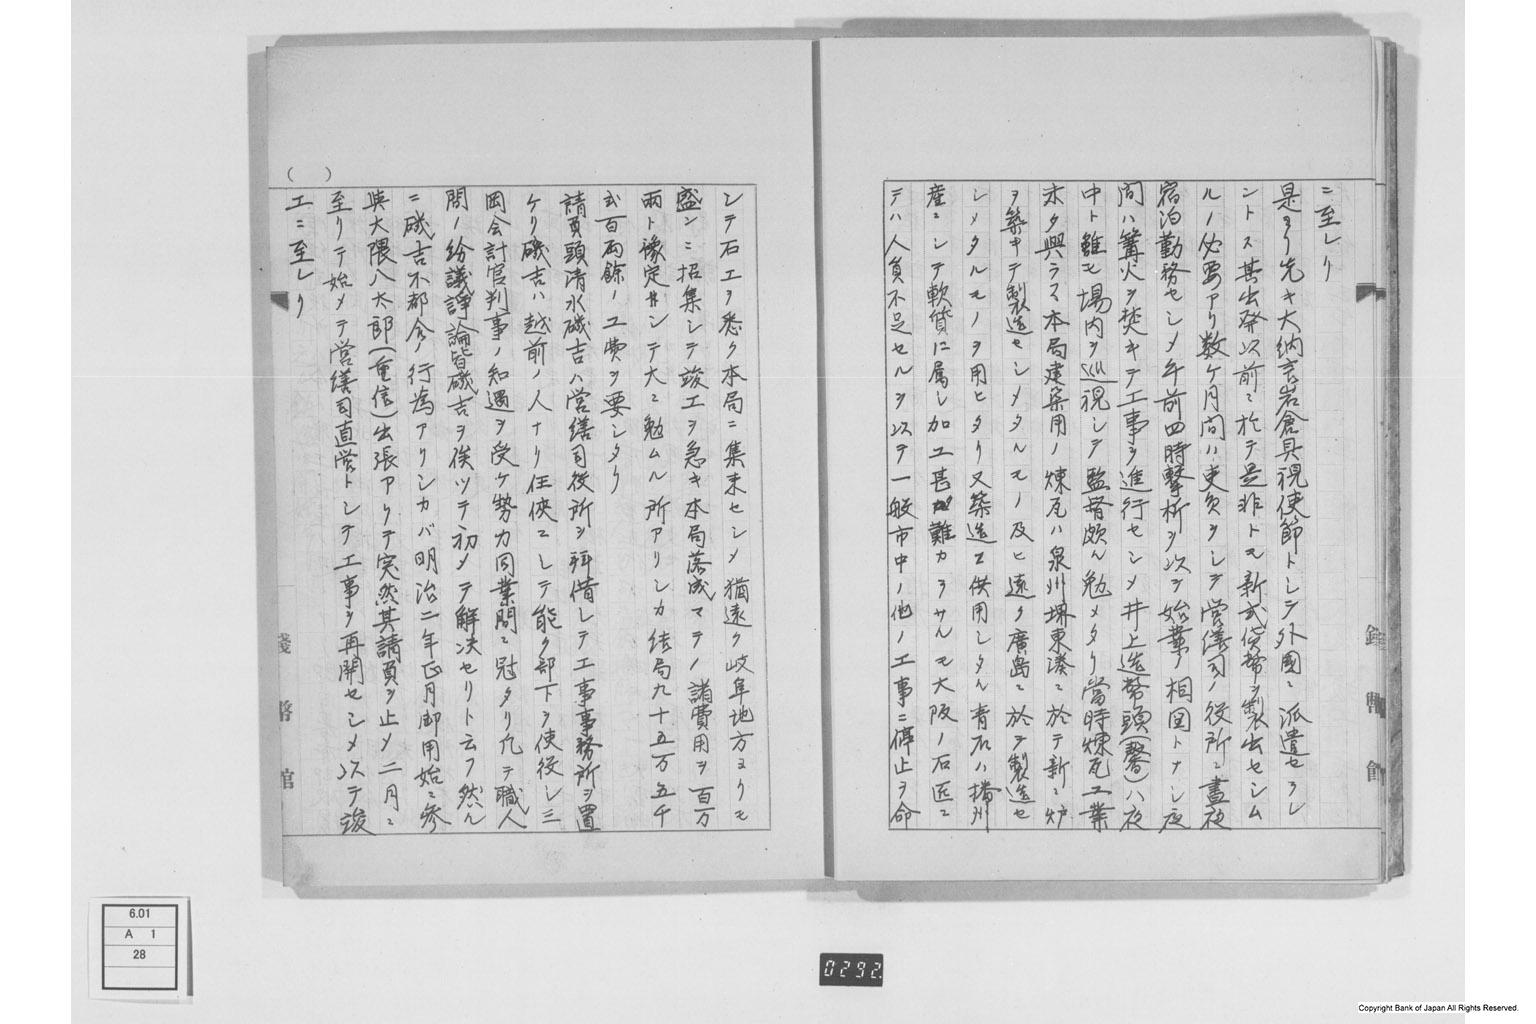 ニ至レリ
是ヨリ先キ大納言岩倉具視使節トシテ外國ニ派遣セラレ
ントス其出発以前ニ於テ是非トモ新式貨幣ヲ製出セシム
ルノ必要アリ数ケ月間ハ吏員ヲシテ営繕司ノ役所ニ晝夜
宿泊勤務セシメ午前四時撃柝ヲ以テ始業ノ相図トナシ夜
間ハ篝火ヲ焚キテ工事ヲ進行セシメ井上造幣頭(馨)ハ夜
中ト雖モ場内ヲ巡視シテ監督頗ル勉メタリ當時煉瓦工業
未タ興ラス本局建築用ノ煉瓦ハ泉州堺東湊ニ於テ新ニ炉
ヲ築キテ製造セシメタルモノ及ヒ遠ク廣島ニ於テ製造セ
シメタルモノヲ用ヒタリ又築造ニ供用シタル青石ハ播州
産ニシテ軟質ニ属シ加工甚難カラサルモ大阪ノ石匠ニ
テハ人員不足セルヲ以テ一般市中ノ他ノ工事ニ停止ヲ命
シテ石工ヲ悉ク本局ニ集来セシメ猶遠ク岐阜地方ヨリモ
盛ンニ招集シテ竣工ヲ急キ本局落成マテノ諸費用ヲ百万
兩ト豫定シテ大ニ勉ムル所アリシカ結局九十五万五千
弐百兩餘ノ工費ヲ要シタリ
請負頭清水磯吉ハ営繕司役所ヲ拜借シテ工事事務所ヲ置
ケリ磯吉ハ越前ノ人ナリ任侠ニシテ能ク部下ヲ使役シ三
岡会計官判事ノ知遇ヲ受ケ勢力同業間ニ冠タリ凡テ職人
間ノ紛議諍論皆磯吉ヲ俟ツテ初メテ解决セリト云フ然ル
ニ磯吉不都合ノ行為アリシカバ明治二年正月御用始ニ参
與大隈八太郎(重信)出張アリテ突然其請負ヲ止メ二月ニ
至リテ始メテ営繕司直営トシテ工事ヲ再開セシメ以テ竣
工ニ至レリ
( )
6.01
A 1
28
0292
Copyright Bank of Japan All Rights Reserved.